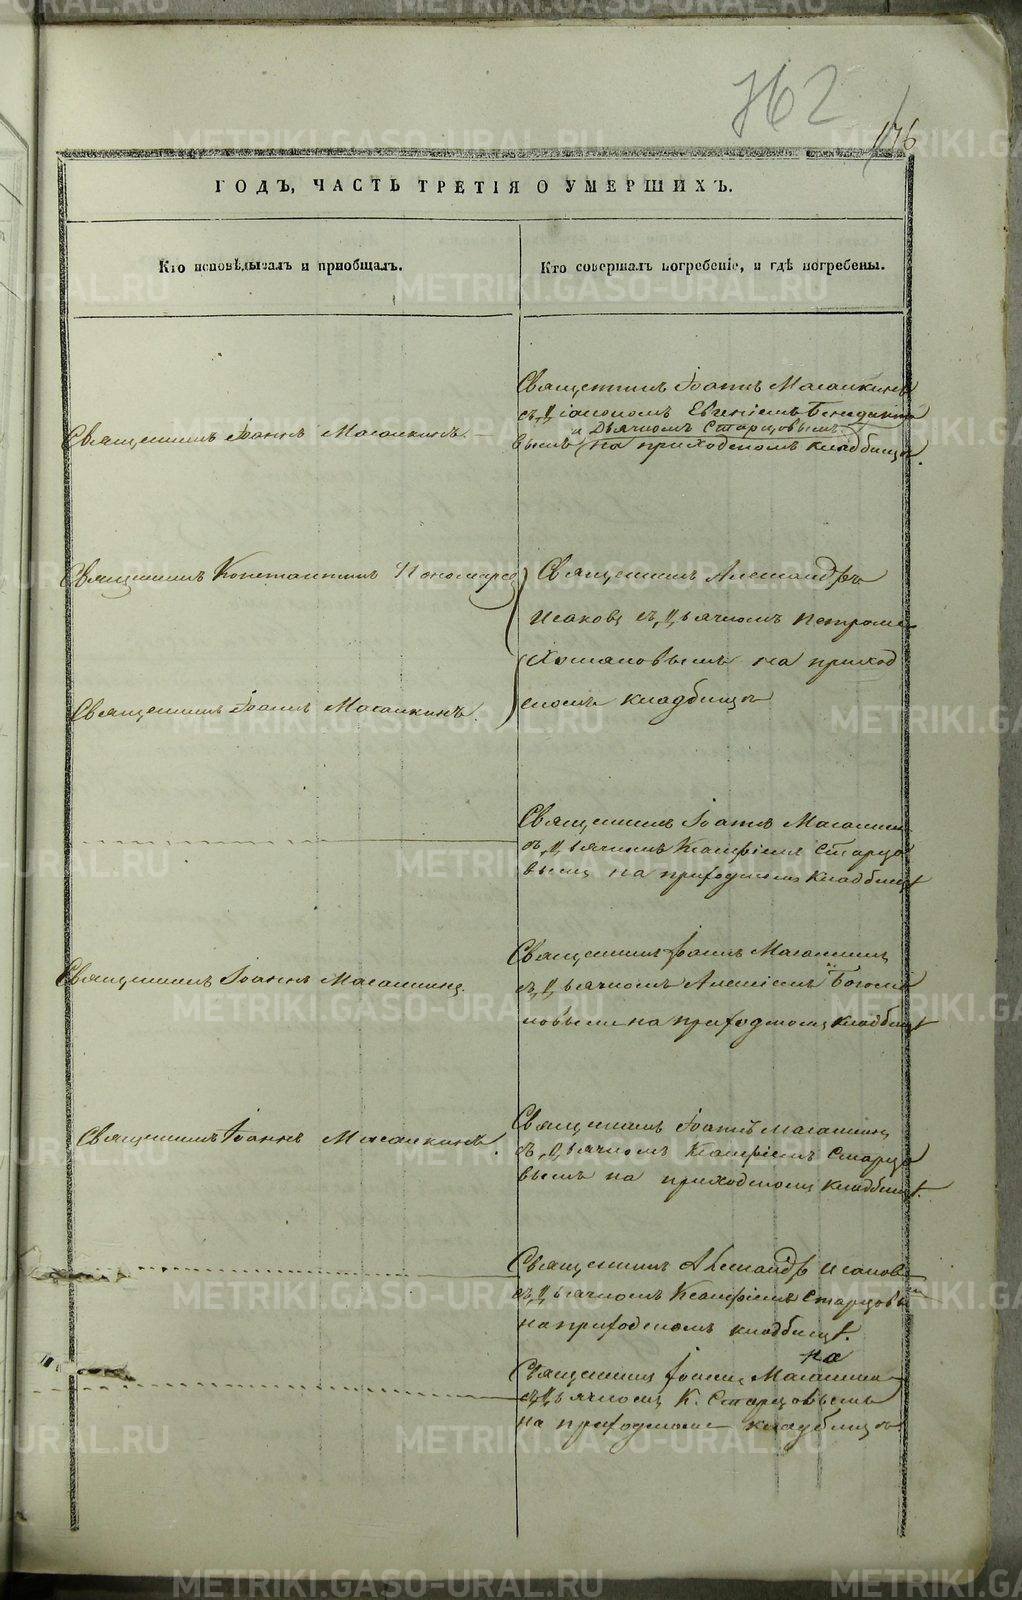 762
176
ГОДЪ, ЧАСТЬ ТРЕТІЯ О УМЕРШИХЪ.
Кто исповѣдывалъ и пріобщалъ.
Кто совершалъ погребеніе, и гдѣ погребены.
Священникъ Іоаннъ Масалкинъ
съ Діакономъ Евгеніемъ
и Дьячкомъ Старцовымъ
вымъ на приходскомъ кладбищѣ.
Священникъ Іоаннъ Масалкинъ.
Священникъ Константинъ Пономарев
Священникъ Александръ
Исаковъ съ Дьячкомъ Петромъ
на приход
скомъ кладбищѣ
Священникъ Іоаннъ Масалкинъ.
Священникъ Іоаннъ Масалкин
съ Дьячкомъ Старцо
вымъ на приходскомъ кладбищѣ
Священникъ Іоаннъ Масалкинъ.
Священникъ Іоаннъ Масалкинъ
съ Дьячкомъ Алексіемъ
на приходскомъ кладбищѣ
Священникъ Іоаннъ Масалкинъ.
Священникъ Іоаннъ Масалкинъ
съ Дьячкомъ Старцо
вымъ на приходскомъ кладбищѣ.
Священникъ Александръ Исаков
съ Дьячкомъ Старцовы
на приходскомъ кладбищѣ.
Священникъ Іоаннъ Масалкин
съ Дьячкомъ К. Старцовымъ
на приходскомъ кладбищѣ
METRIKI.GASO-URAL.RU